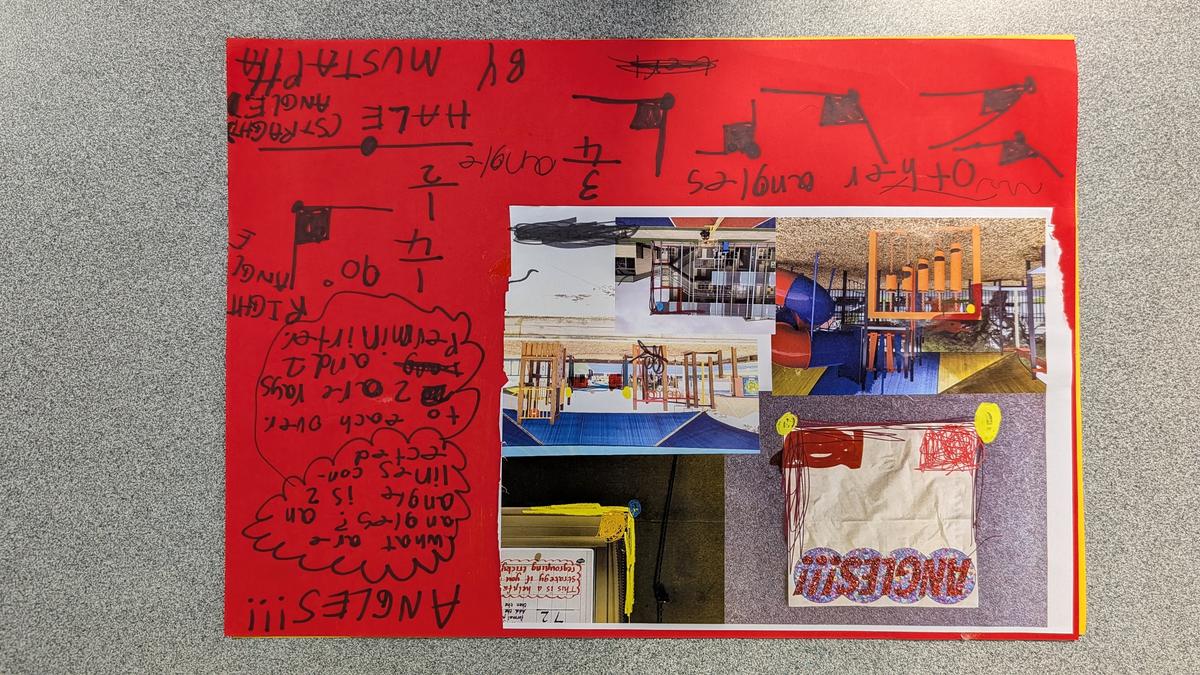 ANGLES!!!
what are
angles? an
angle is 2
lines con-
ected
to each over.
2 are rays
and 1
Perminirter.
RIGHT
ANGLE
90°
1/4
1/2
HALE (STRAGHT
ANGLED
BY MUSTAPHA
3/4 angle
Other angles
ANGLES!!!
72
This is a helpful
strategy if you
regrouping tricky